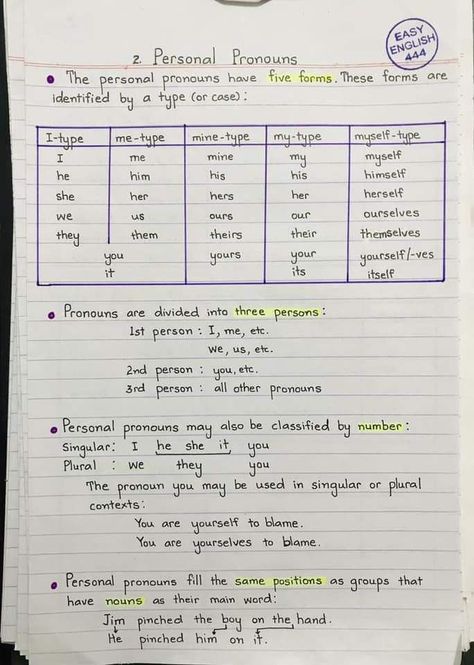 EASY
ENGLISH
444
2. Personal Pronouns
• The personal pronouns have five forms. These forms are
identified by a type (or case):
I-type me-type mine-type my-type myself-type
I me mine my myself
he him his his himself
she her hers her herself
we us ours our ourselves
they them theirs their themselves
you yours your yourself/-ves
it its itself
• Pronouns are divided into three persons:
1st person : I, me, etc.
we, us, etc.
2nd person : you, etc.
3rd person : all other pronouns
• Personal pronouns may also be classified by number:
Singular: I he she it you
Plural : we they you
The pronoun you may be used in singular or plural
contexts:
You are yourself to blame.
You are yourselves to blame.
• Personal pronouns fill the same positions as groups that
have nouns as their main word:
Jim pinched the boy on the hand.
He pinched him on it.